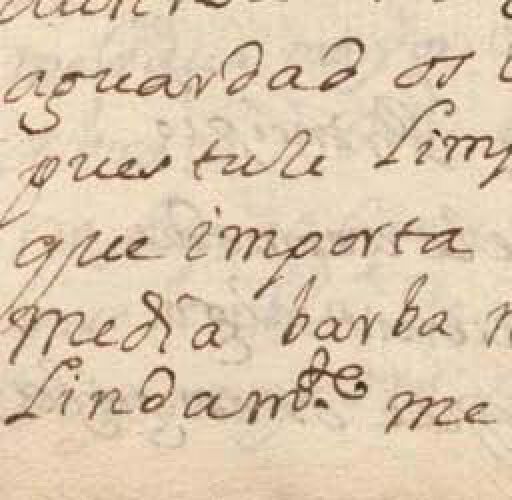 aguardad os
pues tule Limp
que importa
media barba
Lindam.te me